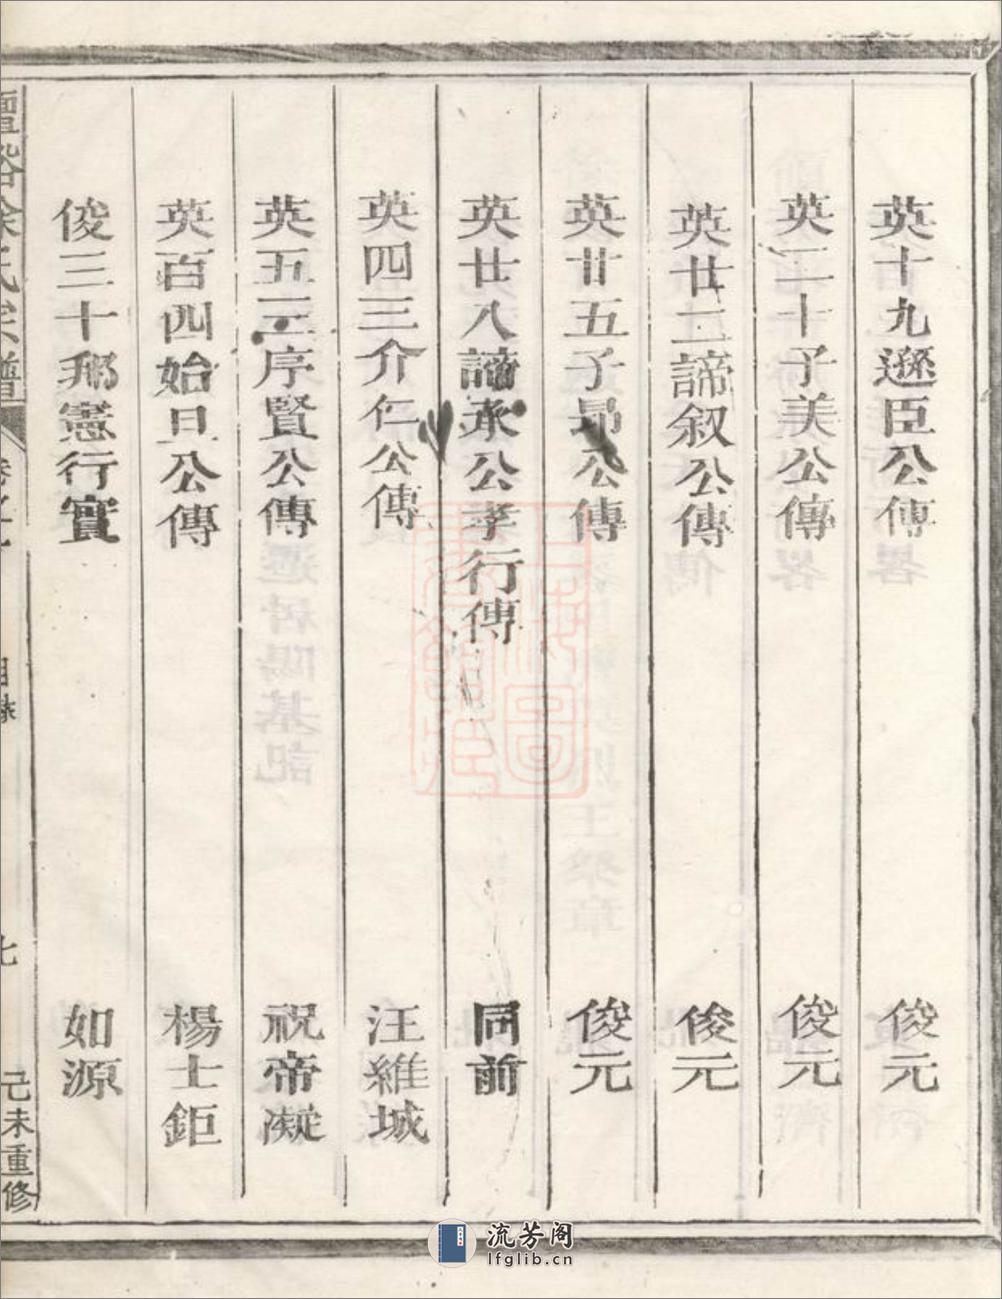 英十九遜臣公傳 俊元
英二十子美公傳 俊元
英廿二諦叙公傳 俊元
英廿五子昂公傳 俊元
英廿八諦承公孝行傳 同前
英四三介仁公傳 汪維城
英五三序賢公傳 祝帝凝
英百四始旦公傳 楊士鉅
俊三十邦憲行實 如源
徐氏宗譜
目錄
七
己未重修
流芳阁
lfglib.cn